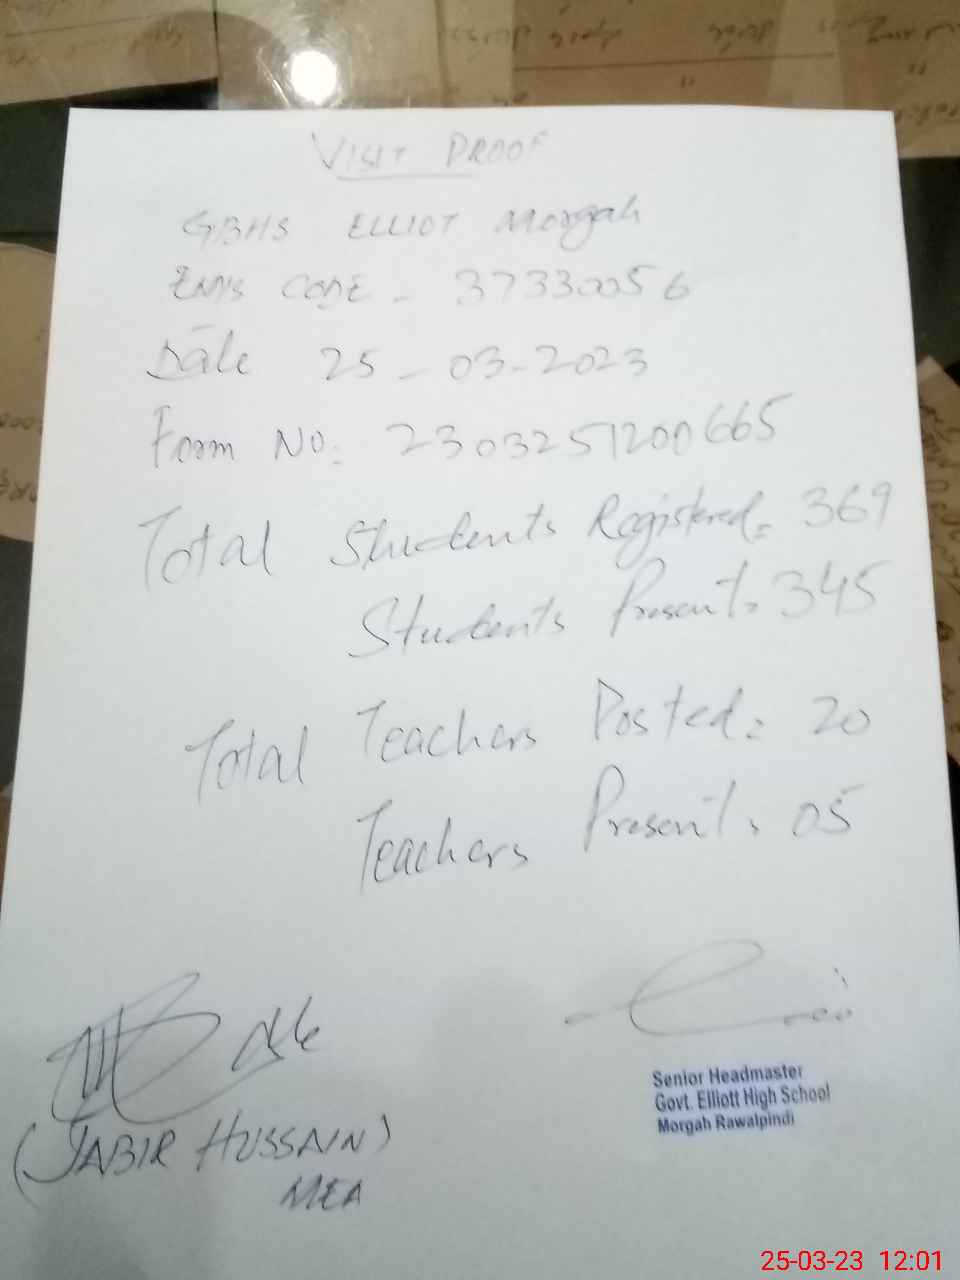 VISIT PROOF
GBHS ELLIOT Morgah
EMIS CODE - 37330056
Date 25-03-2023
Form NO: 2303251200665
Total Students Registered: 369
Students Present: 345
Total Teachers Posted: 20
Teachers Present: 05
(JABIR HUSSAIN)
MEA
Senior Headmaster
Govt. Elliott High School
Morgah Rawalpindi
25-03-23 12:01